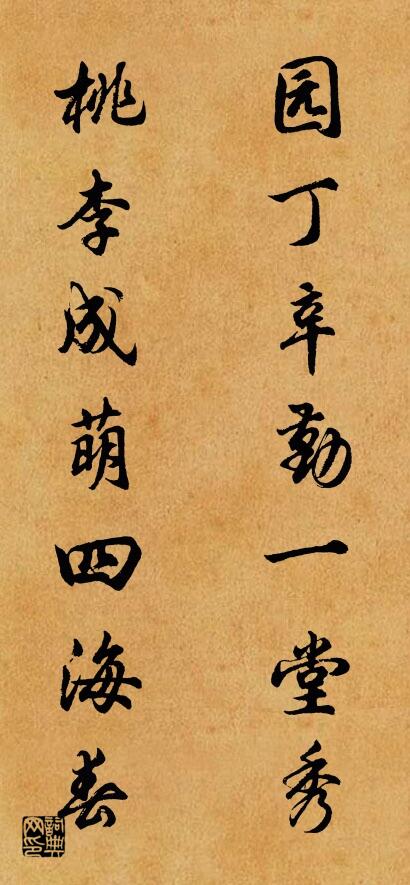 园丁辛勤一堂秀
桃李成萌四海春